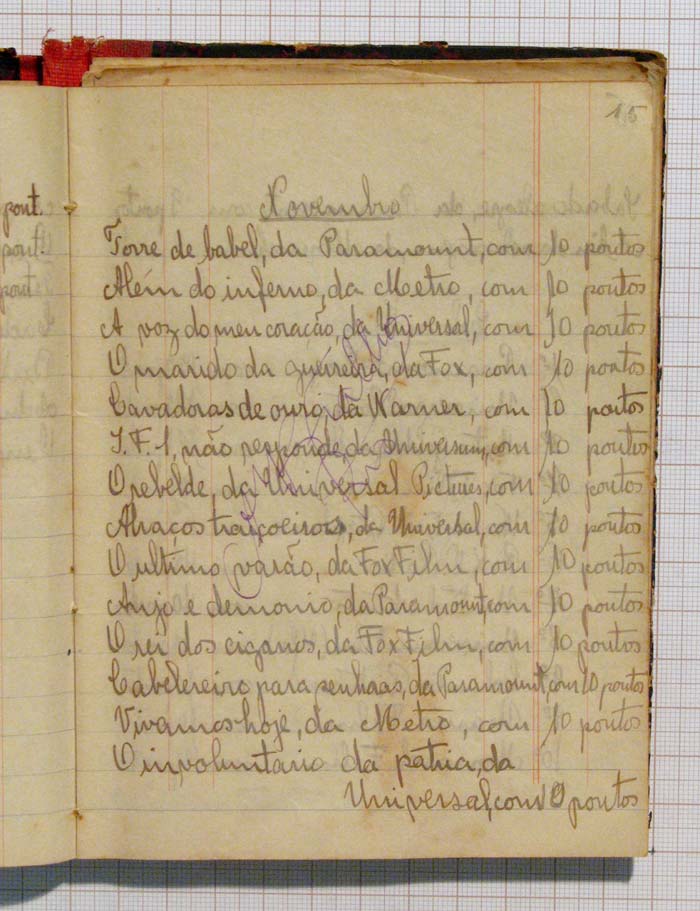 15
pont.
pont.
pont
Novembro
Torre de babel, da Paramount, com 10 pontos
Além do inferno, da Metro, com 10 pontos
A voz do meu coração, da Universal, com 10 pontos
O marido da gueireira, da Fox, com 10 pontos
Cavadoras de ouro, da Warner, com 10 pontos
I. F. 1, não responde, da Universum, com 10 pontos
O rebelde, da Universal Pictures, com 10 pontos
Abraços traiçoeiros, da Universal, com 10 pontos
O ultimo varão, da Fox Film, com 10 pontos
Anjo e demonio, da Paramount, com 10 pontos
O rei dos ciganos, da Fox Film, com 10 pontos
Cabelereiro para senhoas, da Paramount, com 10 pontos
Vivamos hoje, da Metro, com 10 pontos
O involuntario da pátria, da
Universal, com 10 pontos